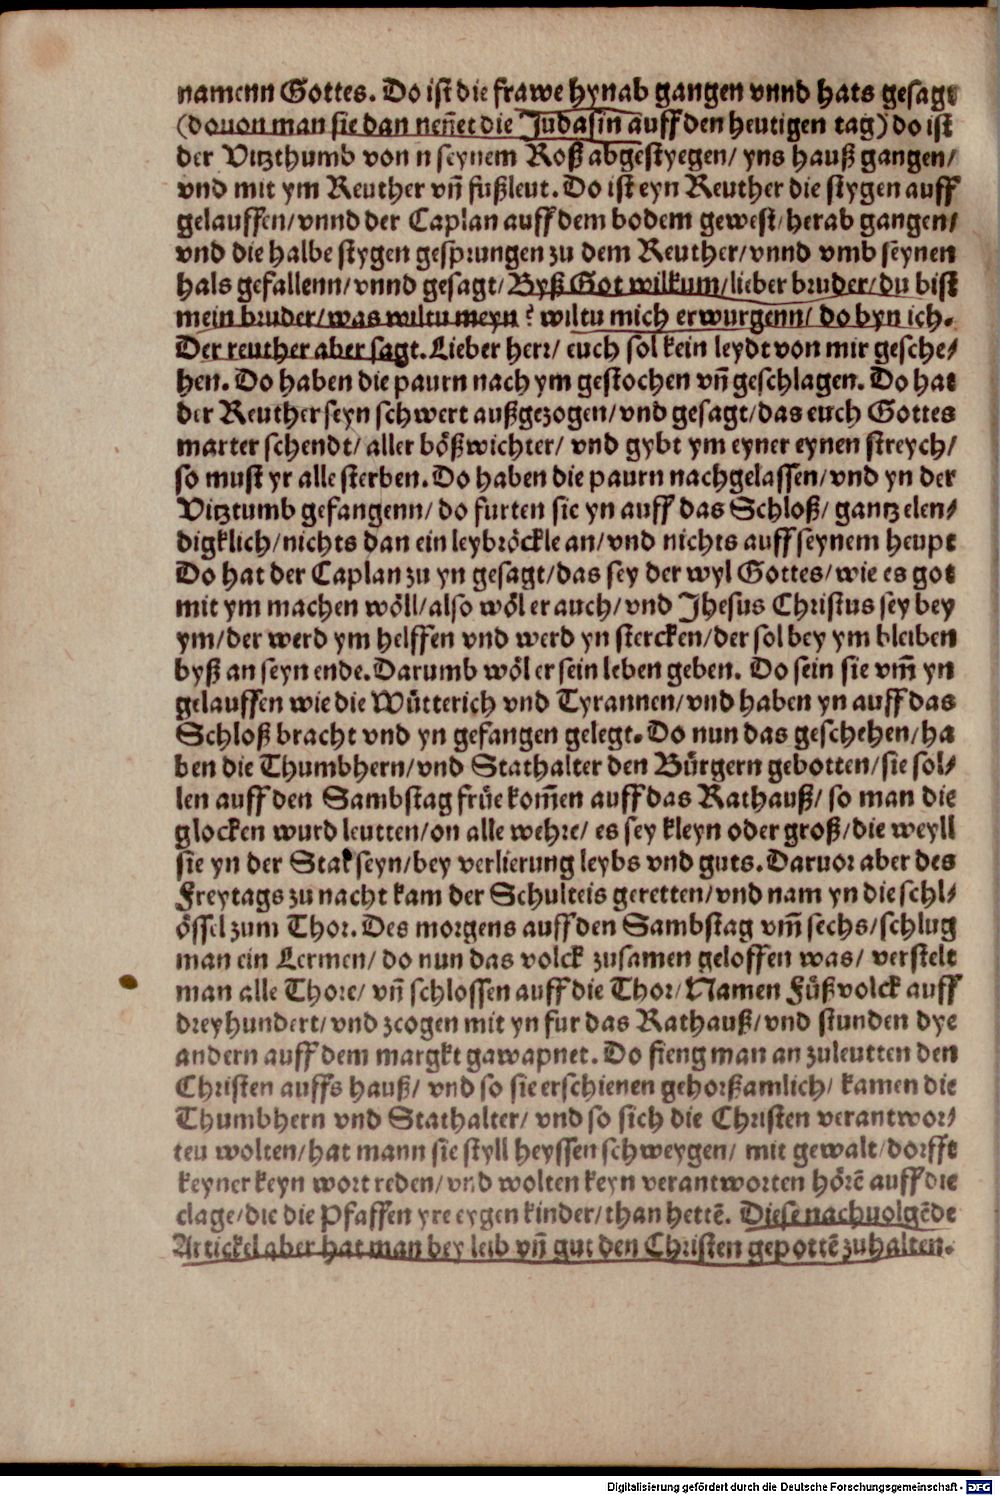 namenn Gottes. Do ist die frawe hynab gangen vnnd hats gesagt
(douon man sie dan neñet die Judasin auff den heutigen tag) do ist
der Vitzthumb von n seynem Roß abgestyegen/ yns hauß gangen/
vnd mit ym Reuther vñ fußleut. Do ist eyn Reuther die stygen auff
gelauffen/ vnnd der Caplan auff dem bodem gewest/ herab gangen/
vnd die halbe stygen gesprungen zu dem Reuther/ vnnd vmb seynen
hals gefallenn/ vnnd gesagt/ Byß Got wilkum/ lieber bruder/ du bist
mein bruder/ was wiltu meyn? wiltu mich erwurgenn/ do byn ich.
Der reuther aber sagt. Lieber herr/ euch sol kein leydt von mir gesche⸗
hen. Do haben die paurn nach ym gestochen vñ geschlagen. Do hat
der Reuther seyn schwert außgezogen/ vnd gesagt/ das euch Gottes
marter schendt/ aller bößwichter/ vnd gybt ym eyner eynen streych/
so must yr alle sterben. Do haben die paurn nachgelassen/ vnd yn der
Vitztumb gefangenn/ do furten sie yn auff das Schloß/ gantz elen⸗
digklich/ nichts dan ein leybröckle an/ vnd nichts auff seynem heupt
Do hat der Caplan zu yn gesagt/ das sey der wyl Gottes/ wie es got
mit ym machen wöll/ also wöl er auch/ vnd Jhesus Christus sey bey
ym/ der werd ym helffen vnd werd yn stercken/ der sol bey ym bleiben
byß an seyn ende. Darumb wöl er sein leben geben. Do sein sie vm̃ yn
gelauffen wie die Wütterich vnd Tyrannen/ vnd haben yn auff das
Schloß bracht vnd yn gefangen gelegt. Do nun das geschehen/ ha
ben die Thumbhern/ vnd Stathalter den Bürgern gebotten/ sie sol⸗
len auff den Sambstag früe kom̃en auff das Rathauß/ so man die
glocken wurd leutten/ on alle wehre/ es sey kleyn oder groß/ die weyll
sie yn der Stat seyn/ bey verlierung leybs vnd guts. Daruor aber des
Freytags zu nacht kam der Schulteis geretten/ vnd nam yn die schl⸗
össel zum Thor. Des morgens auff den Sambstag vm̃ sechs/ schlug
man ein Lermen/ do nun das volck zusamen geloffen was/ verstelt
man alle Thore/ vñ schlossen auff die Thor/ Namen Füßvolck auff
dreyhundert/ vnd zcogen mit yn fur das Rathauß/ vnd stunden dye
andern auff dem margkt gawapnet. Do fieng man an zuleutten den
Christen auffs hauß/ vnd so sie erschienen gehorßamlich/ kamen die
Thumbhern vnd Stathalter/ vnd so sich die Christen verantwor⸗
ten wolten/ hat mann sie styll heyssen schweygen/ mit gewalt/ dorfft
keyner keyn wort reden/ vnd wolten keyn verantworten hörẽ auff die
clage/ die die Pfaffen yre eygen kinder/ than hettẽ. Diese nachuolgẽde
Artickel aber hat man bey leib vñ gut den Christen gepottẽ zuhalten.
Digitalisierung gefördert durch die Deutsche Forschungsgemeinschaft - DFG